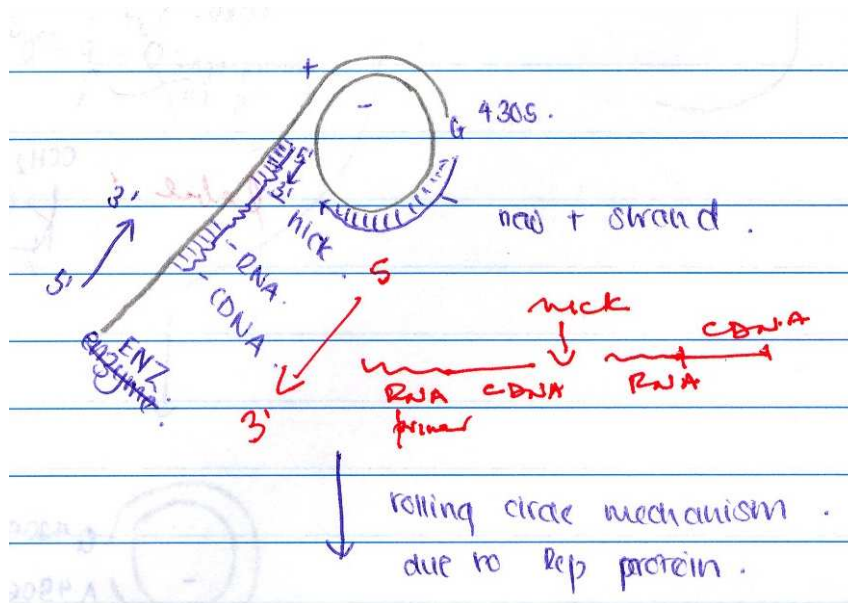 +
-
G 4305.
5'
3'
nick
new + strand.
3'
5'
RNA.
CDNA.
ENZ.
5
3'
nick
CDNA
RNA CDNA
RNA
primer
rolling circle mechanism.
due to Rep protein.